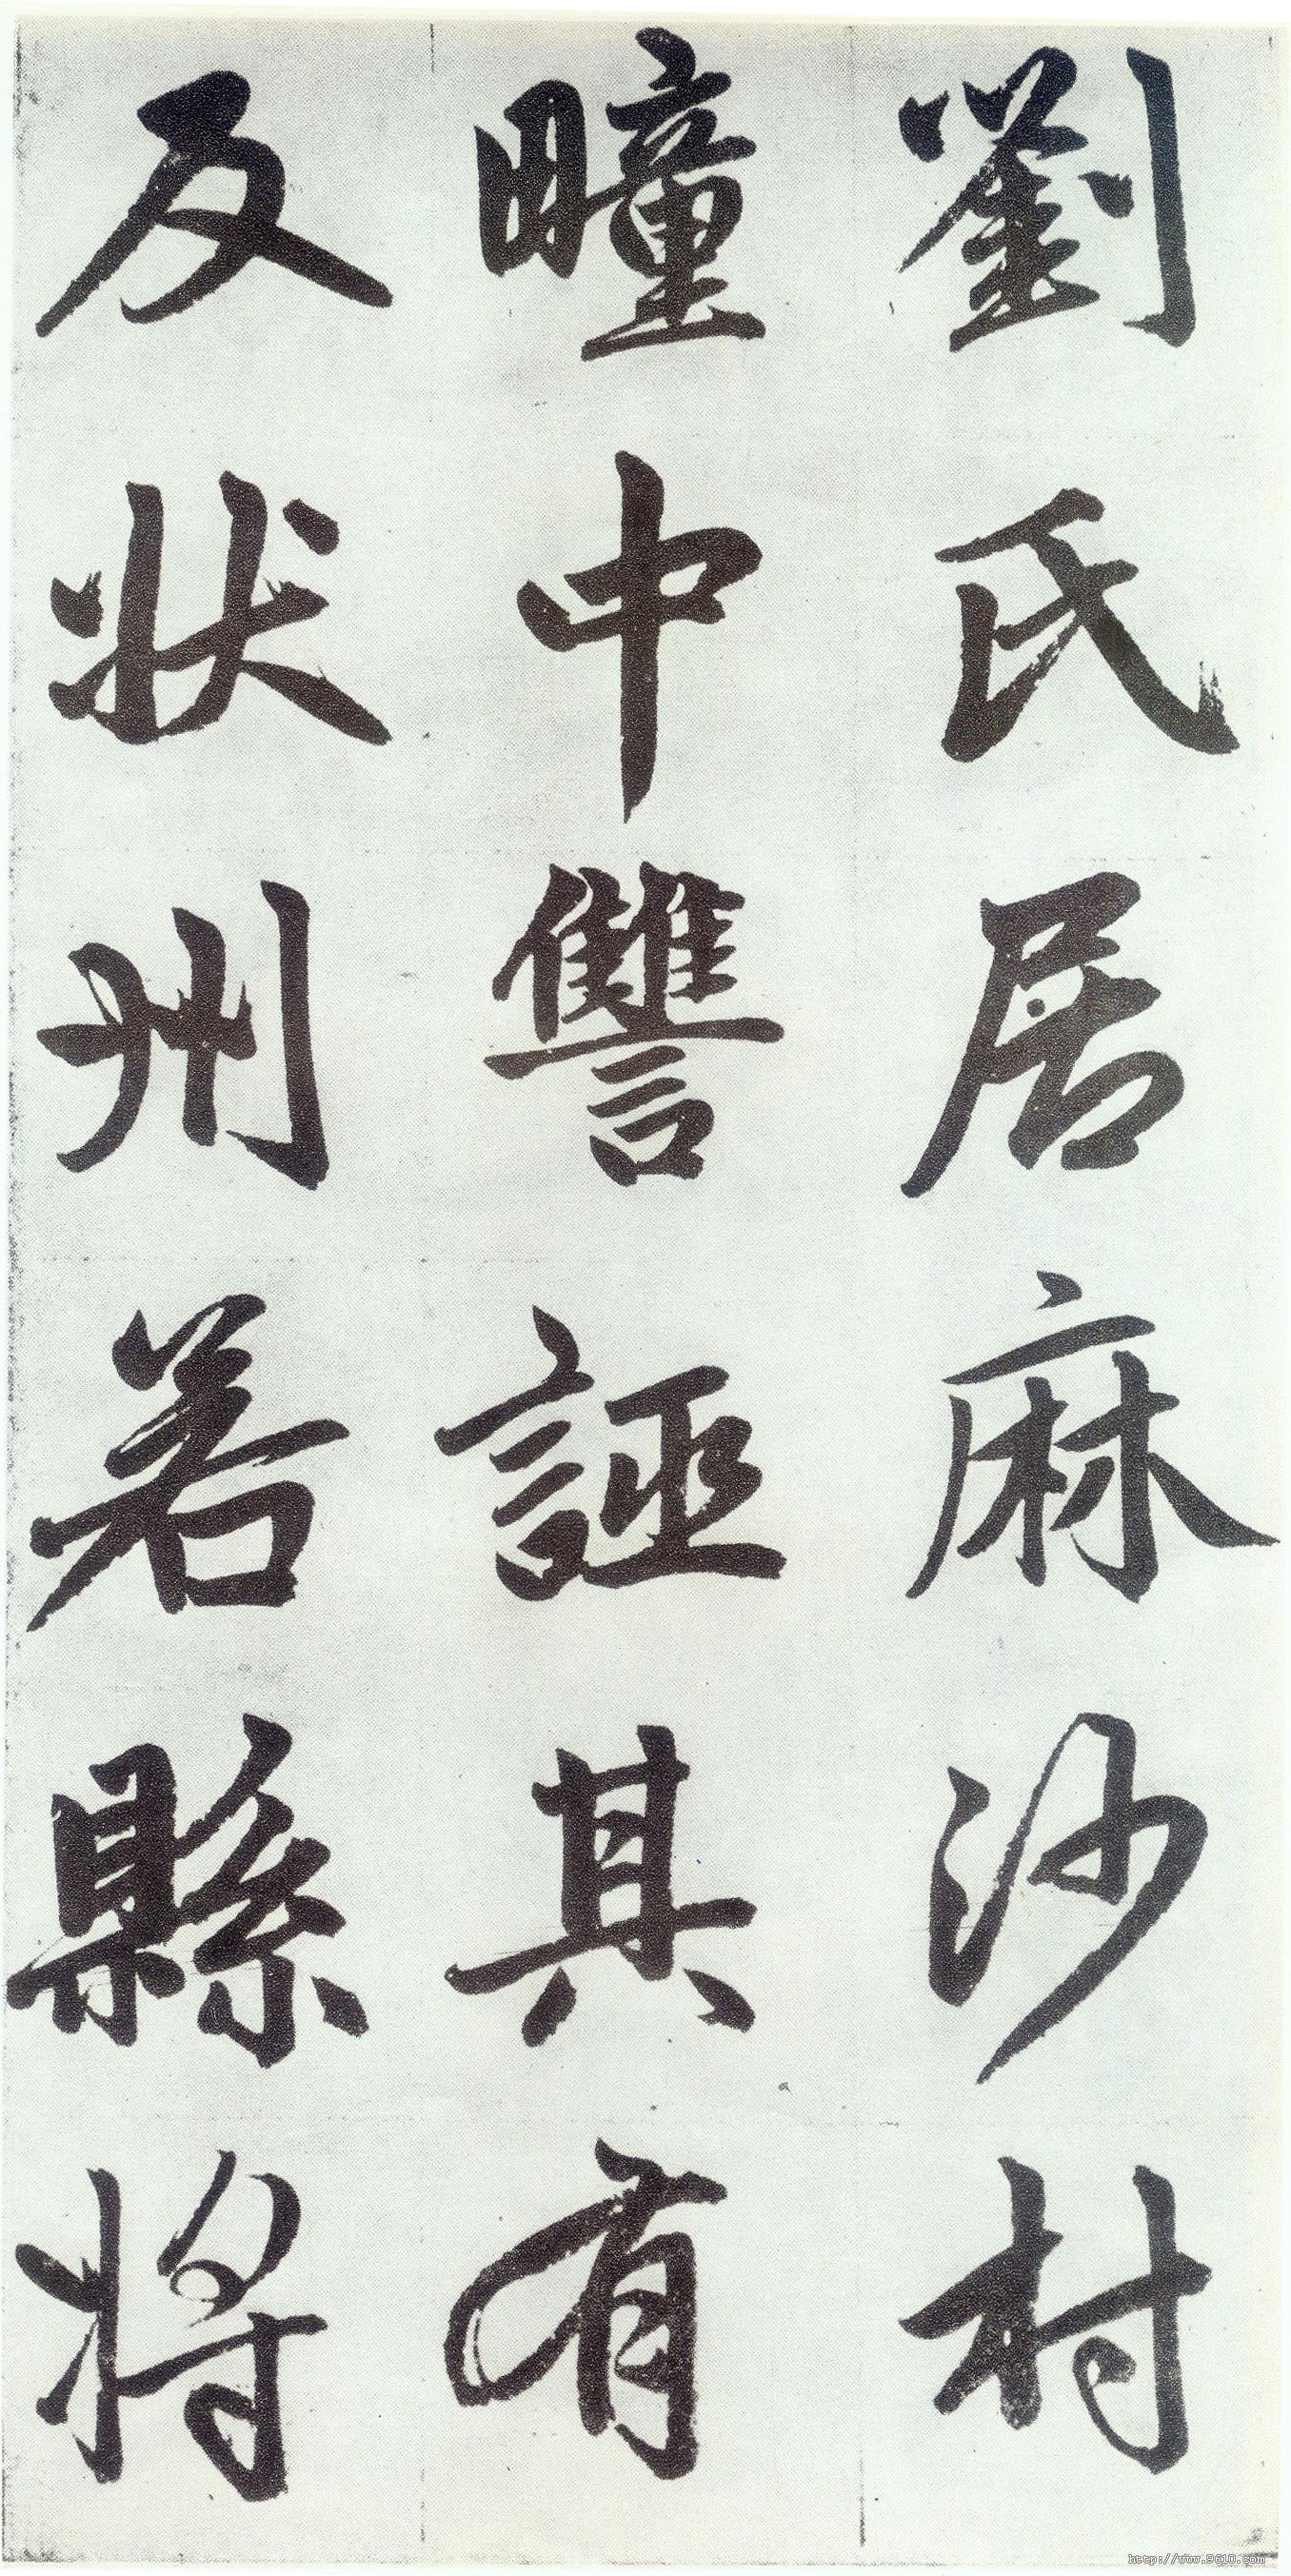 劉氏居麻沙村
疃中讐誣其有
反狀州若縣將
http://www.9610.com